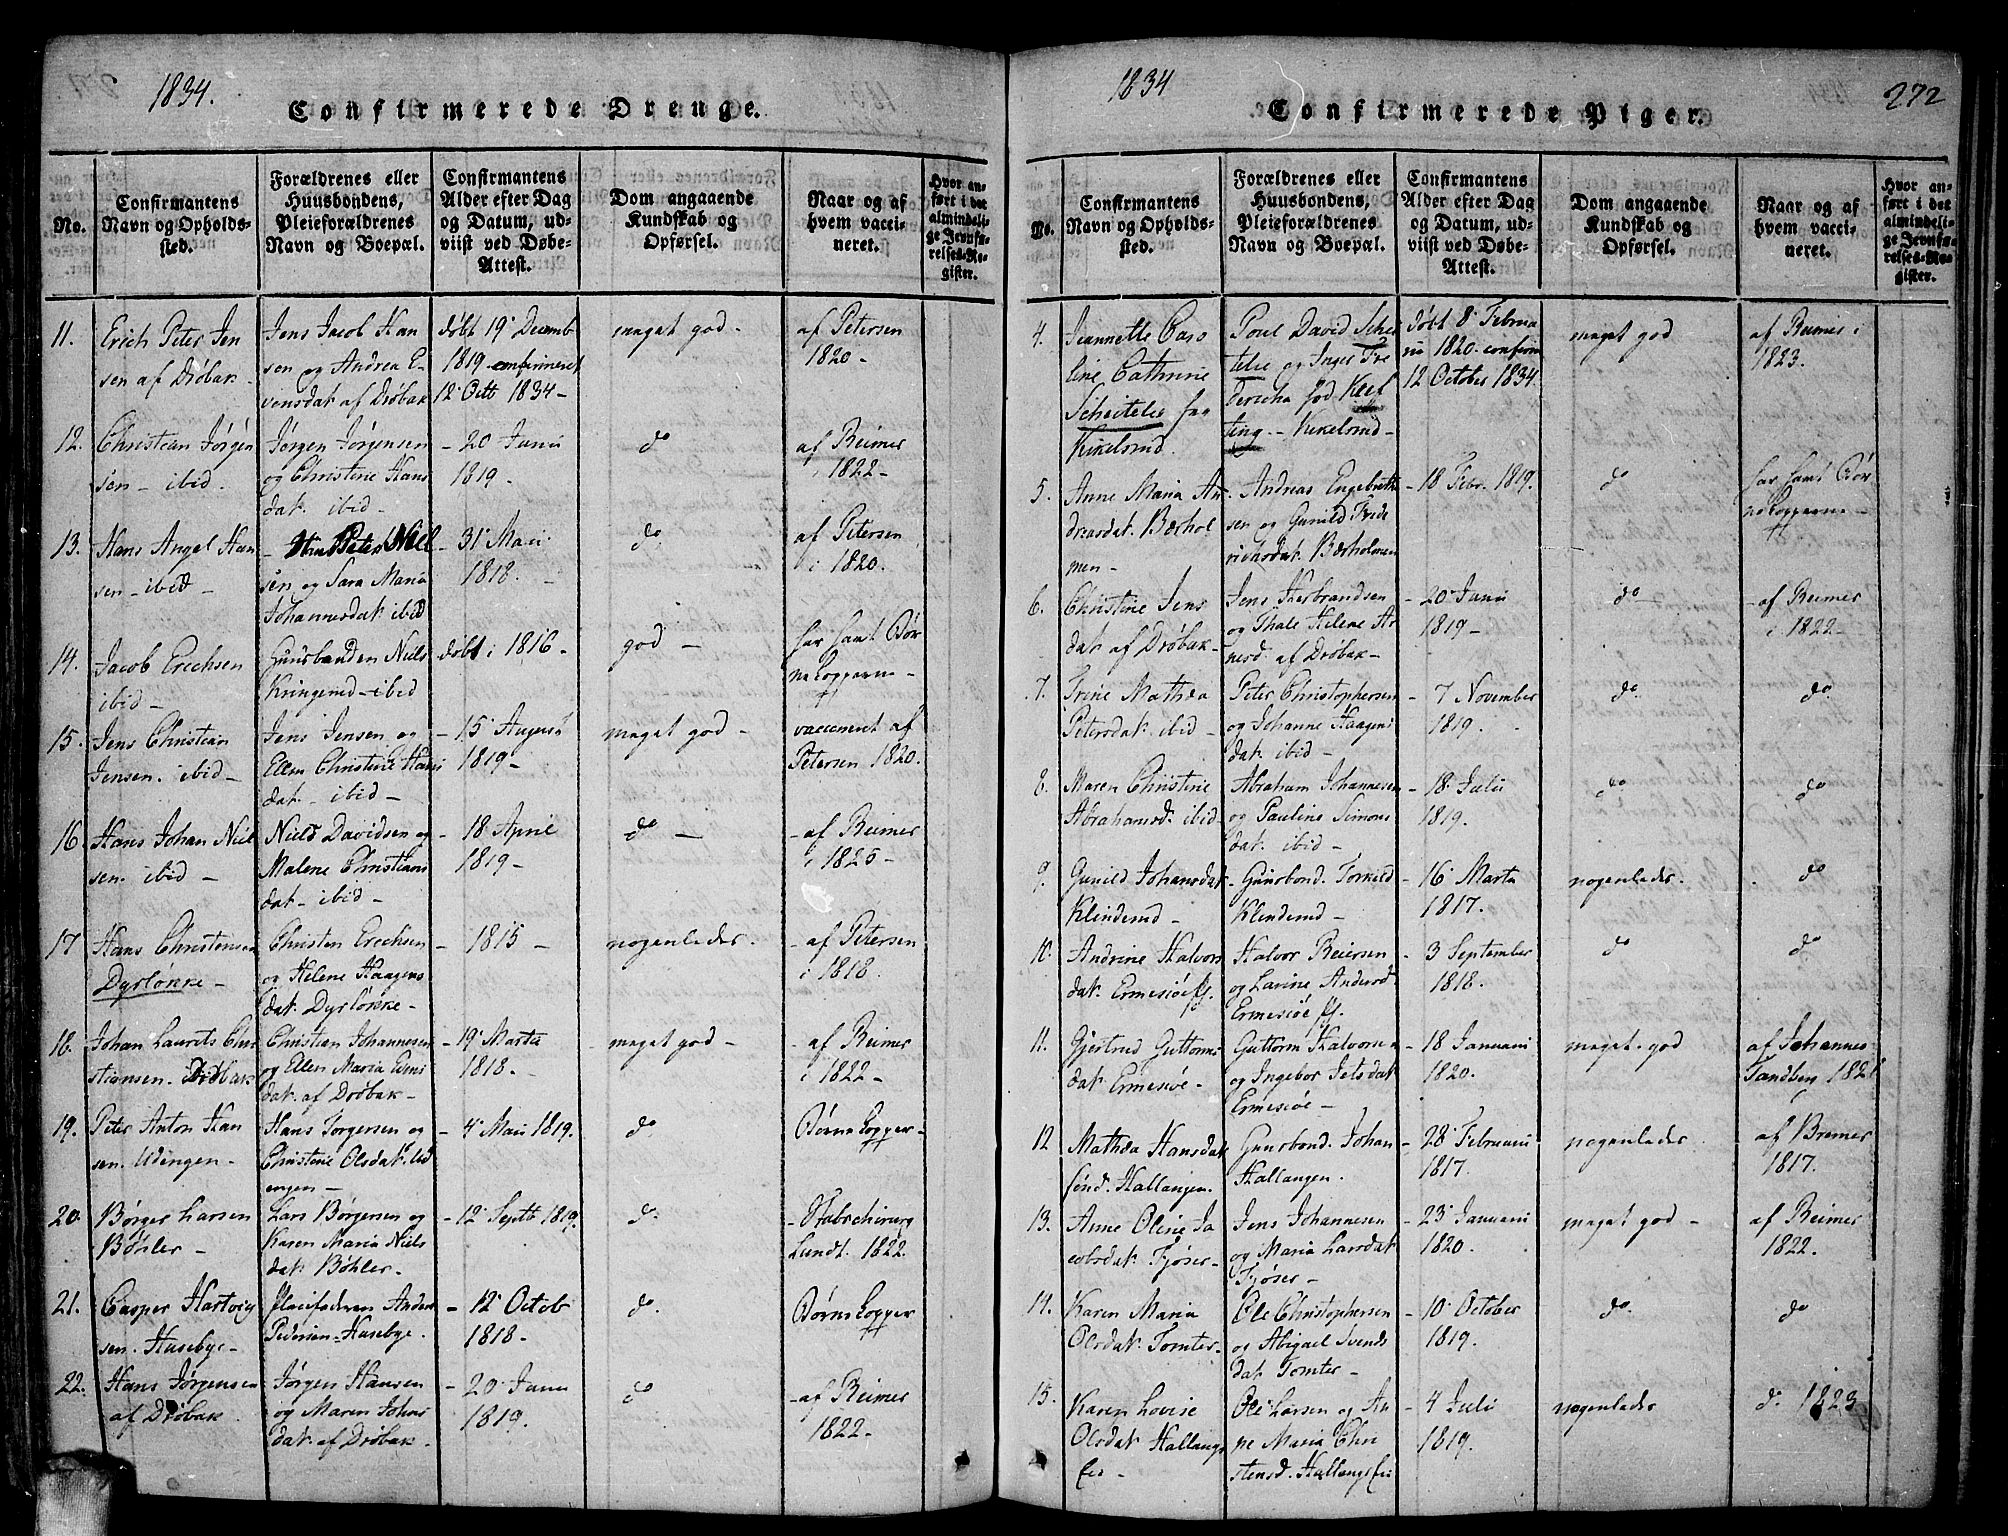 1834.
Confirmerede Drenge.
No.
Confirmantens
Navn og Opholds-
sted.
Forældrenes eller
Huusbondens,
Pleieforældrenes
Navn og Boepæl.
Confirmantens
Alder efter Dag
og Datum, ud-
viist ved Døbe-
Attest.
Dom angaaende
Kundskab og
Opførsel.
Naar og af
hvem vacci-
neret.
Hvor an-
ført i det
almindeli-
ge Jevnfø-
relses-Re-
gister.
11.
Erich Peter Jen
sen af Drøbak
Jens Jacob Han
sen og Andrea E-
vensdat af Drøbak
døbt 19 Decemb
1819 confirmeret
12 Octb 1834-
meget god -
af Petersen
1820-
12.
Christian Jørgen
sen - ibid.
Jørgen Jørgensen
og Christine Hans
dat. ibid -
- 20 Juni
1819.
do
af Reimer
i 1822-
13.
Hans Angel Han
sen - ibid -
Peter Niel
sen og Sara Maria
Johannesdat. ibid
- 31 Mai
1818. -
do
af Petersen
i 1820.
14.
Jacob Erichsen
ibid -
Huusbonden Niels
Kringerud - ibid
døbt i 1816 -
god -
har havt Bør
nekopperne -
15.
Jens Christian
Jensen. ibid -
Jens Jensen og
Ellen Christine Hans
dat. - ibid -
- 15 August
1819 -
meget god -
vaccineret af
Petersen 1820.
16
Hans Johan Niel
sen. ibid -
Niels Davidsen og
Malene Christians
dat - ibid -
- 18 April
1819 -
do -
- af Reimer
i 1825 -
17
Hans Christensen
Dyrløkke -
Christen Erechsen
og Helene Haagens
dat. Dyrløkke -
- 1815 -
nogenledes.
- af Petersen
i 1818.
18.
Johan Laurits Chri
stiansen. Drøbak
Christian Johannesen
og Ellen Maria
dat. af Drøbak -
- 19 Martii
1818. -
- meget god -
- af Reimer
i 1822 -
19.
Peter Anton Han
sen. Udengen -
Hans Torgersen og
Christine Olsdat. Ud
engen -
- 4 Mai 1819.
do
Børnekopper -
20.
Børger Larsen
Bøhler -
Lars Børgersen og
Karen Maria Niels
dat Bøhler -
- 12 Septb 1819.
do
- Stabschirurg
Lundt. 1822.
21.
Casper Hartvig
sen. Husebye -
Pleiefaderen Anders
Pedersen - Husebye.
- 12 Octob
1818 -
do.
Børnekopper
22.
Hans Jørgensen
af Drøbak.
Jørgen Hansen
og Maren Johns
dat. af Drøbak.
- 20 Juni
1819.
do
- af Reimer
1822 -
1834
272
Confirmerede Piger.
No.
Confirmantens
Navn og Opholds-
sted.
Forældrenes eller
Huusbondens,
Pleieforældrenes
Navn og Boepæl.
Confirmantens
Alder efter Dag
og Datum, ud-
viist ved Døbe-
Attest.
Dom angaaende
Kundskab og
Opførsel.
Naar og af
hvem vacci-
neret.
Hvor an-
ført i det
almindeli-
ge Jevnfø-
relses-Re-
gister.
4.
Jeannette Caro
line Cathrine
Scheitelie fra
Kikelsrud.
Poul David Schei
telie og Inger Fre
dericha fød Keel
ting - Kikelsrud -
døbt 8 Februa
rii 1820. confirm
12 October 1834.
meget god
af Reimer i
1823.
5.
Anne Maria An
dreasdat. Bærhol
men -
Andreas Engebreth
sen og Gunild Frede
richsdat. Bærholmen
- 18 Febr. 1819.
do
har havt Bør
nekopperne -
6.
Christine Jens
dat. af Drøbak
Jens Herbrandsen
og Thale Helene Ar
nesd. af Drøbak -
- 20 Juni
1819 -
do
- af Reimer
i 1822 -
7.
Trine Mathea
Petersdat. ibid -
Peter Christophersen
og Johanne Haagens
dat. ibid -
- 7 November
1819.
do
do
8.
Maren Christine
Abrahamsd. ibid -
Abraham Johannesen
og Pauline Simons
dat. ibid -
- 18 Juli
1819.
do
do
9.
Gunild Johansdat.
Klinderud -
Huusbond. Torkild
Klinderud -
- 16 Martii
1817.
nogenledes.
do
10.
Andrine Halvors
dat. Ermesiøe
Halvor Reiersen
og Larine Andersd
Ermesiøe
- 3 September
1818.
do
do
11.
Gjertrud Guttorms
dat. Ermesiøe -
Guttorm Halvorsen
og Ingebor Jelsdat
Ermesiøe -
- 18 Januarii
1820.
meget. god
af Johannes
Tandberg 1821
12
Mathea Hansdat
sønd. Hallangen.
Huusbond. Johan
Hallangen.
- 28 Februarii
1817.
nogenledes.
af Bremer
1817.
13.
Anne Oline Ja
cobsdat. Fjøser -
Jens Johannesen
og Maria Larsdat
Fjøser -
- 23 Januarii
1820.
meget god -
af Reimer
1822.
14.
Karen Maria
Olsdat. Tomter -
Ole Christophersen
og Abigael Svends
dat Tomter -
- 10 October
1819.
do.
do
15.
Karen Lovise
Olsdat Hallangs
eie -
Ole Larsen og An
ne Maria Chri
stensd. Hallangseie
- 4 Juli
1819.
nogenledes
do 1823